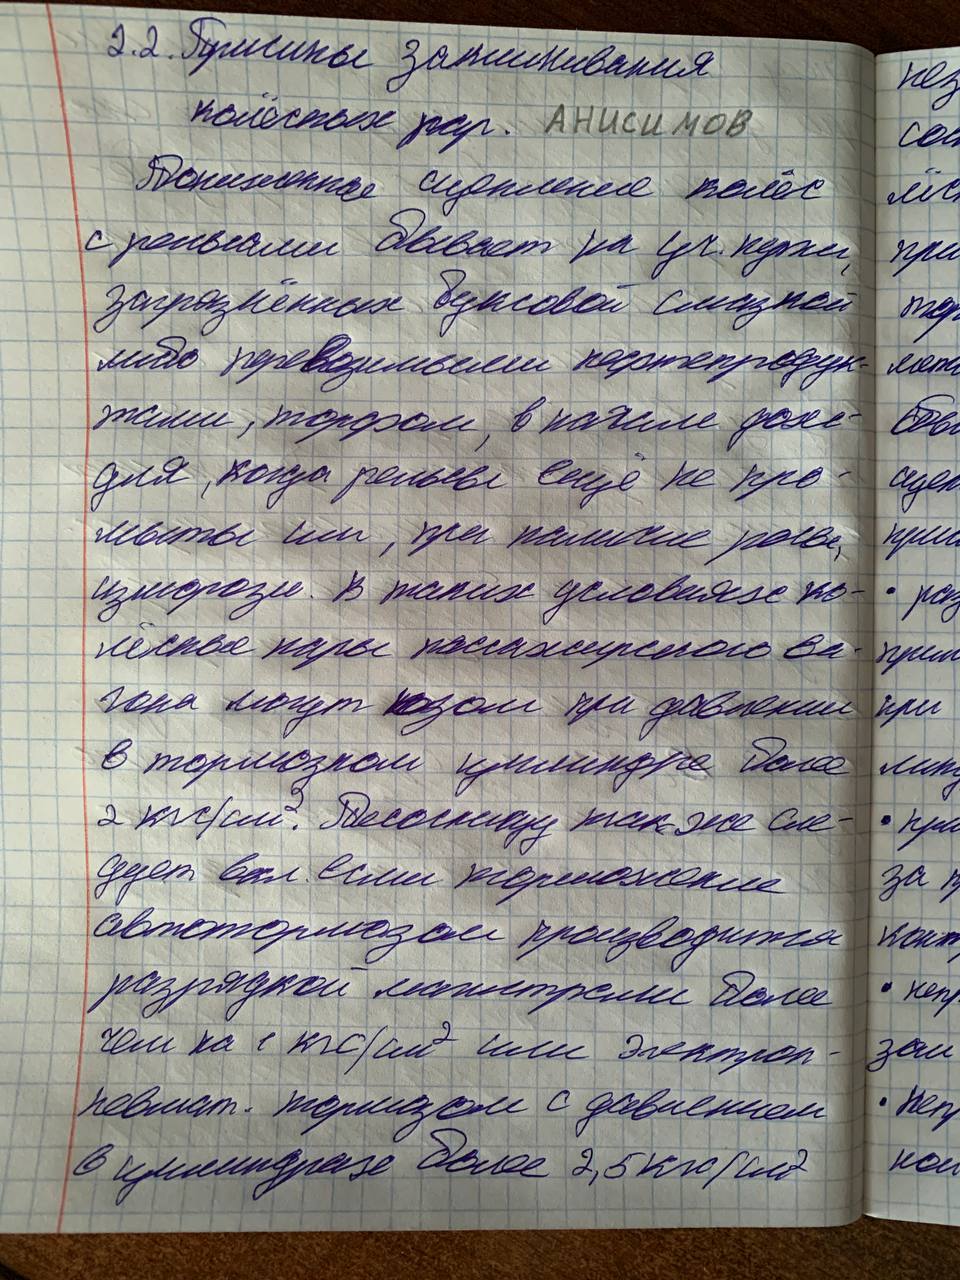 2.2. Причины заклинивания
колёсных пар. АНИСИМОВ
Пониженное сцепление колёс
с рельсами бывает на уч. пути,
загрязнённых буксовой смазкой
либо перевозимыми нефтепродук-
тами, торфом, в начале дож-
дя, когда рельсы ещё не про-
мыты или, при наличие росы,
изморози. В таких условиях ко-
лёсные пары пассажирского ва-
гона могут юзом при давлении
в тормозном цилиндре более
2 кгс/см². Песочницу так-же сле-
дует вкл. если торможение
автотормозом производится
разрядкой магистрали более
чем на 1 кгс/см² или электроп-
невмат. тормозом с давлением
в цилиндрах более 2,5 кгс/см²
нез
при
• раз
при
• пра
за п
• непр
• Непр